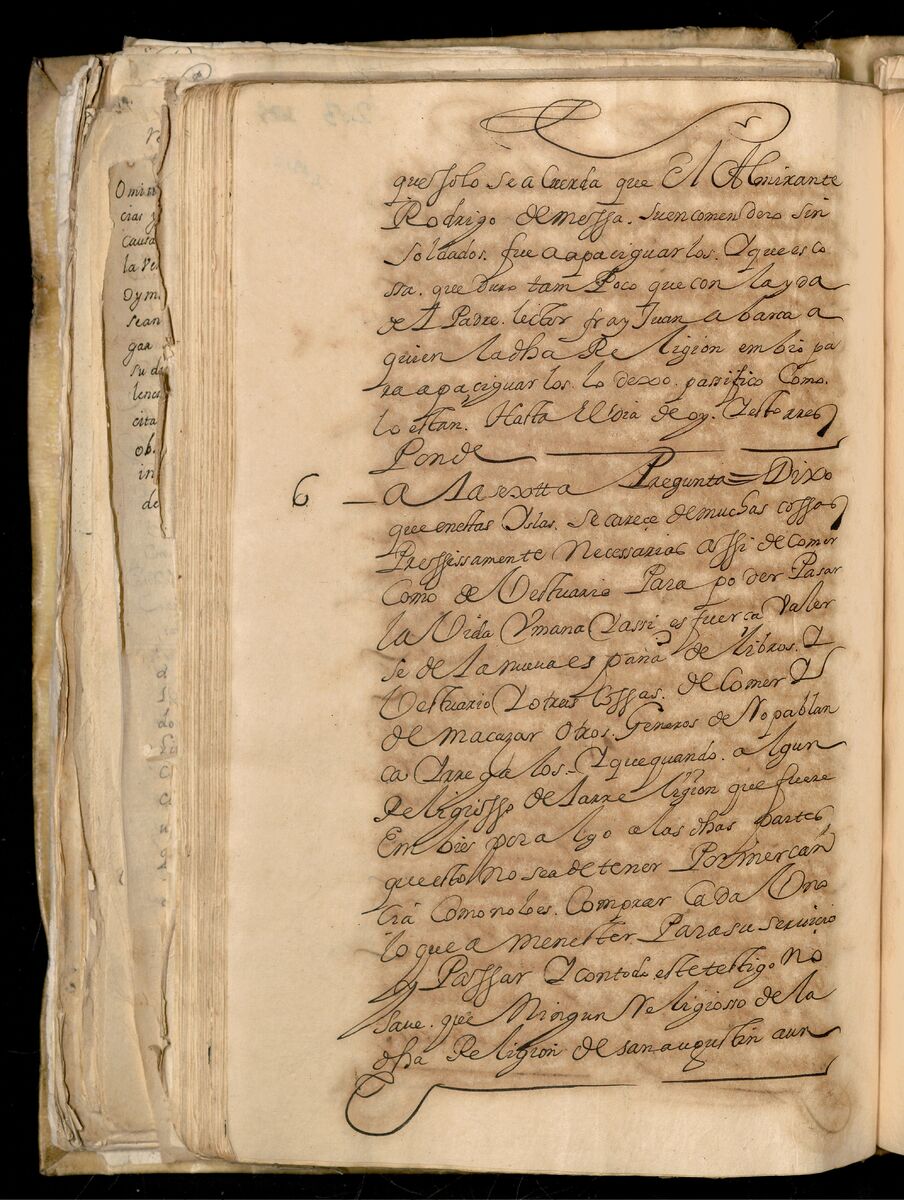 Omiti
cias y
Causa
la Ve
Dym
sean
gar
su d
lenc
cita
ob.
in
de
ques solo se a Cuerda que El Almirante
Rodrigo de messa. suencomendero sin
soldados. fue a apaciguarlos. Y que es co
ssa. que duro tam Poco que con la yda
del Padre. lector fray Juan abarca a
quien la dha Religion embio pa
ra apaciguarlos. lo dexo. passifico Como.
lo estan. Hasta el dia de oy. Y esto rres
Ponde
6 — a la sextta Pregunta = Dixo
que en estas Yslas. se careçe de muchas cossas
Pressissamente Necessarias assi de Comer
Como de Vestuario Para poder Pasar
la Vida Ymana Yassi es fuerça Valer
se de la nueva españa de libros. Y
Vestuario Y otras Cossas. de Comer Y
de macazar Otros. Generos de Ropablan
ca Y rregalos. Y que quando. algun
Religiosso de la rreligion que fuere
Embie por algo a las dhas partes
que esto No sea de tener Por mercan
cia Como no lo es. Comprar Cada Uno
lo que a menester Para su servicio
Y Passar Y con todo este testigo No
save. que Ningun Religiosso de la
dha Religion de san augustin aun